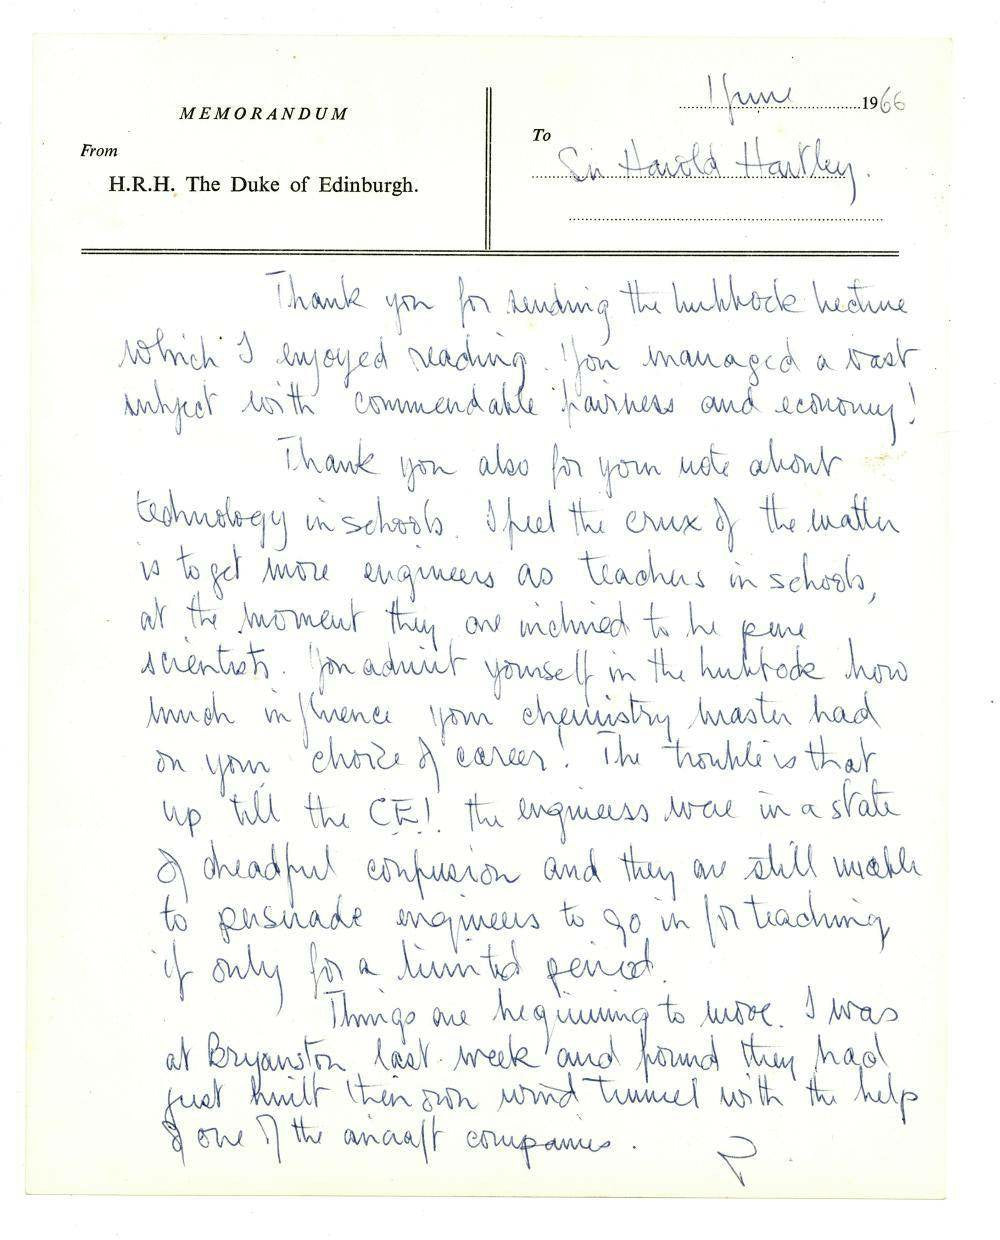 1 June 1966
MEMORANDUM
To
From
Sir Harold Hartley.
H.R.H. The Duke of Edinburgh.
Thank you for sending the Lubbock Lecture
which I enjoyed reading. You managed a vast
subject with commendable fairness and economy!
Thank you also for your note about
technology in schools. I feel the crux of the matter
is to get more engineers as teachers in schools,
at the moment they are inclined to be pure
scientists. You admit yourself in the Lubbock how
much influence your chemistry master had
on your choice of career! The trouble is that
up till the CEI. the engineers were in a state
of dreadful confusion and they are still unable
to persuade engineers to go in for teaching
if only for a limited period.
Things are beginning to move. I was
at Bryanston last week and found they had
just built their own wind tunnel with the help
of one of the aircraft companies.
P.